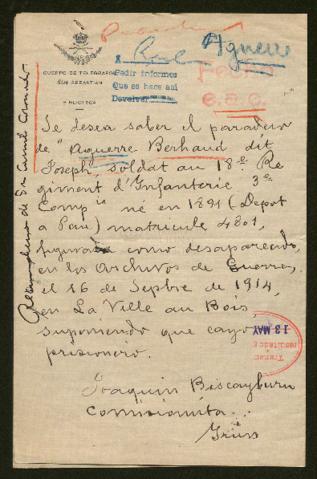 Aguerre
CUERPO DE TELEGRAFOS
SAN SEBASTIAN
Pedir informes
Que se hace asi
Devolver
Se desea saber el paradero
de "Aguerre Berhaud dit
Joseph", soldat au 18e Re
giment d'Infanterie 3e
Compie né en 1891 (Depot
a Pau) matricule 4801,
figurado como desaparecido,
en los Archivos de Guerre,
el 16 de Sepbre de 1914,
en La Ville au Bois,
suponiendo que cayo
prisionero.
Joaquin Biscayburu
Comisionista
13 MAY